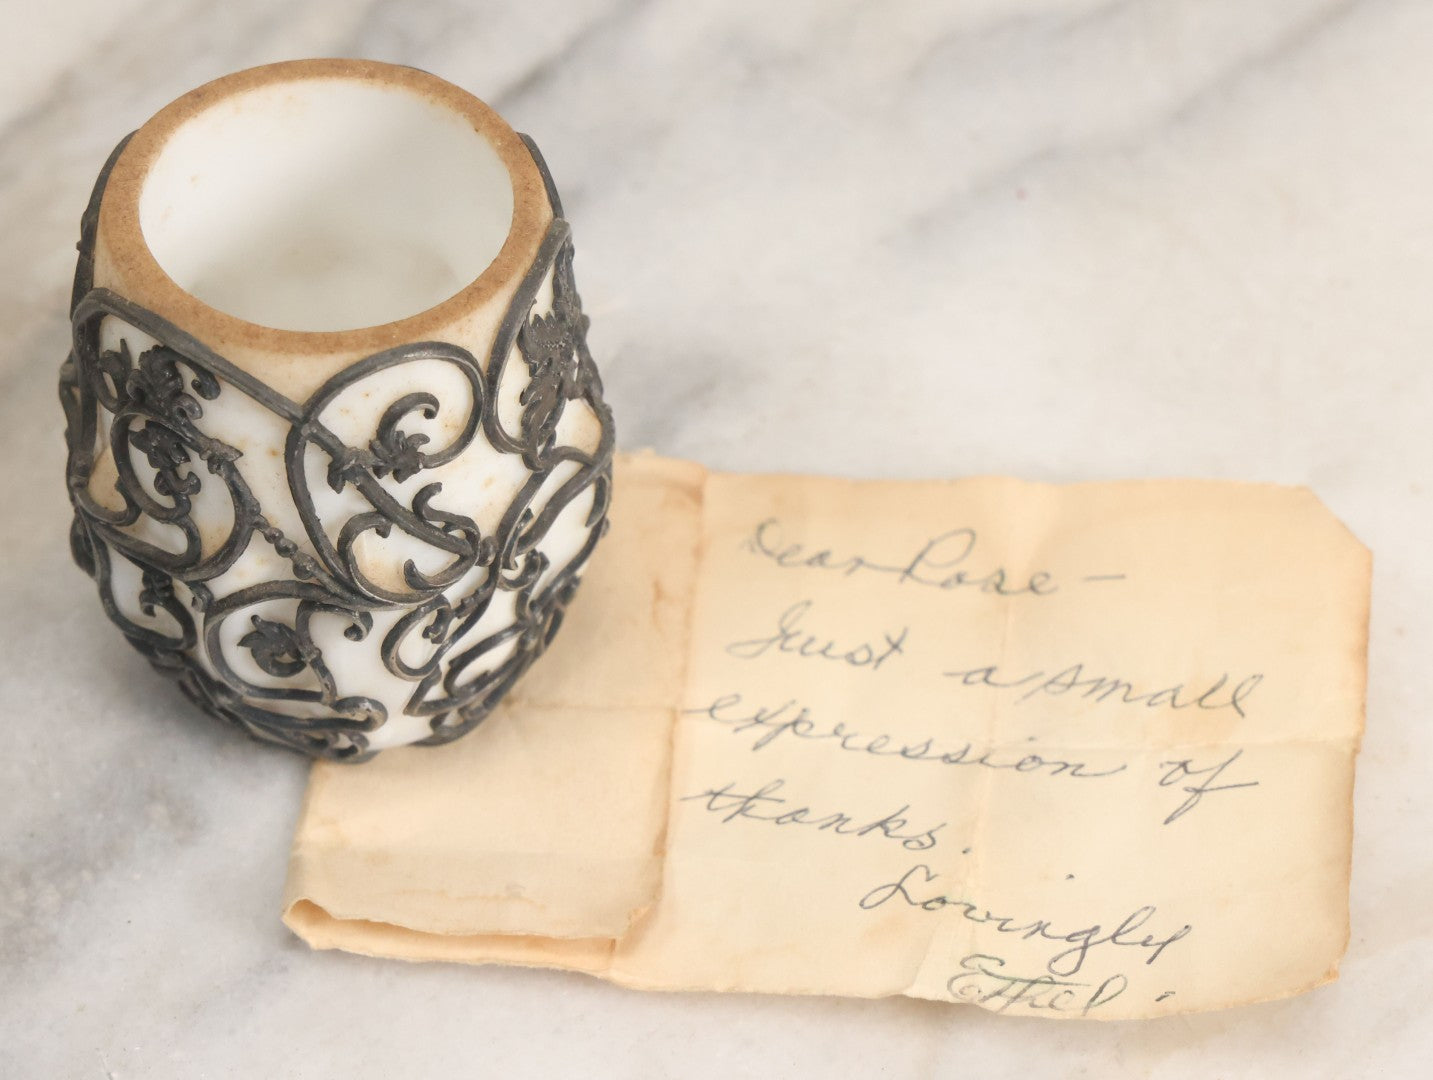 Dear Rose –
Just a small
expression of
thanks.
Lovingly
Ethel.